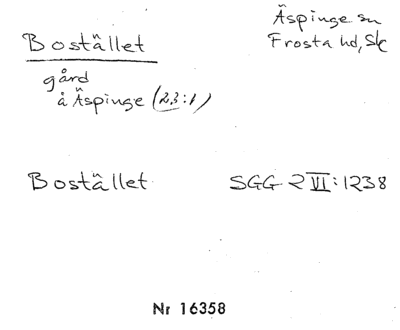 Bostället
Äspinge sn
Frosta hd, Sk
gård
å Äspinge (2,3:1)
Bostället SGG 2 VI:1238
Nr 16358